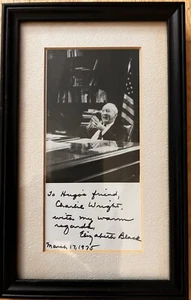 To Hugo's friend,
Charlie Wright,
with my warm
regards,
Elizabeth Black
March 17, 1975